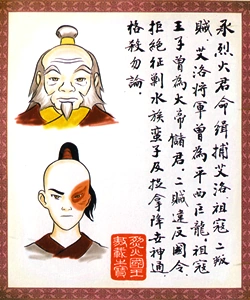 承烈火君命緝捕艾洛祖寇二叛
賊.艾洛將軍曾為平西巨龍,祖寇
王子曾為大帝儲君.二賊違反國令
拒絕征剿水族蠻子及拉拿降世神通
格殺勿論